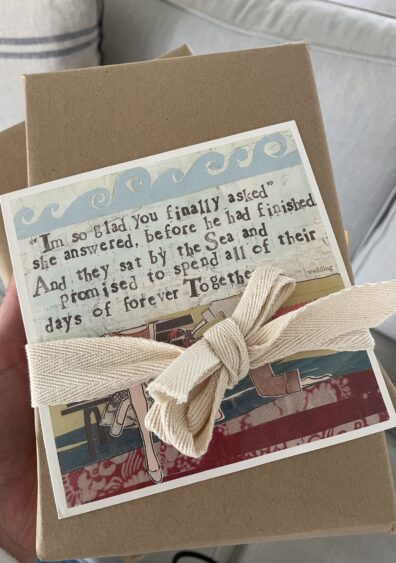 "Im so glad you finally asked"
she answered, before he had finished.
And they sat by the Sea and
promised to spend all of their
days of forever Together
wedding